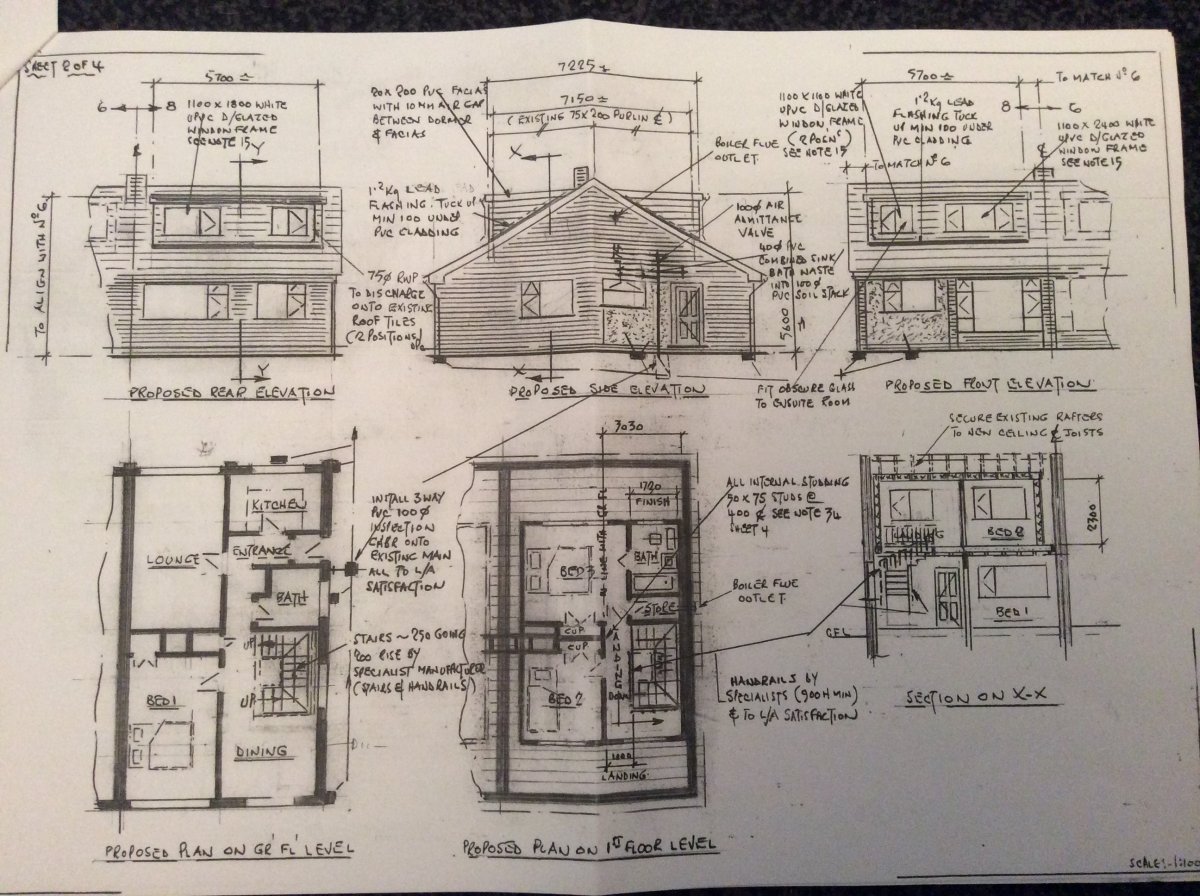 SHEET 2 OF 4
5700 ±
6
8
1100 x 1800 WHITE
UPVC D/GLAZED
WINDOW FRAME
SEE NOTE 15
Y
TO ALIGN WITH Nº 6
Y
PROPOSED REAR ELEVATION
20 x 200 PVC FACIAS
WITH 10MM AIR GAP
BETWEEN DORMER
& FACIAS
1·2 Kg LEAD
FLASHING. TUCK UP
MIN 100 UNDER
PVC CLADDING
75ø RWP
TO DISCHARGE
ONTO EXISTING
ROOF TILES
(2 POSITIONS)
7225 ±
7150 ±
(EXISTING 75 x 200 PURLIN ℄)
X
BOILER FLUE
OUTLET
100ø AIR
ADMITTANCE
VALVE
40ø PVC
COMBINED SINK
BATH WASTE
INTO 100ø
PVC SOIL STACK
5600
X
PROPOSED SIDE ELEVATION
1100 x 1100 WHITE
UPVC D/GLAZED
WINDOW FRAME
(2 POSNS)
SEE NOTE 15
TO MATCH Nº 6
5700 ±
1·2 Kg LEAD
FLASHING TUCK
UP MIN 100 UNDER
PVC CLADDING
TO MATCH Nº 6
8
6
1100 x 2400 WHITE
UPVC D/GLAZED
WINDOW FRAME
SEE NOTE 15
FIT OBSCURE GLASS
TO ENSUITE ROOM
PROPOSED FRONT ELEVATION
KITCHEN
LOUNGE
ENTRANCE
BATH
UP
BED 1
UP
DINING
PROPOSED PLAN ON GR' FL' LEVEL
INSTALL 3 WAY
PVC 100ø
INSPECTION
CMBR ONTO
EXISTING MAIN
ALL TO L/A
SATISFACTION
STAIRS ~ 250 GOING
200 RISE BY
SPECIALIST MANUFACTURER
(STAIRS & HANDRAILS)
3030
1720
FINISH
BATH
BED 3
STORE
CUP
CUP
BED 2
DOWN
1000
LANDING
PROPOSED PLAN ON 1ST FLOOR LEVEL
ALL INTERNAL STUDDING
50 x 75 STUDS @
400 ℄ SEE NOTE 34
SHEET 4
BOILER FLUE
OUTLET
HANDRAILS BY
SPECIALISTS (900H MIN)
& TO L/A SATISFACTION
SECURE EXISTING RAFTERS
TO NEW CEILING & JOISTS
LANDING
BED 2
2300
BED 1
G.F.L
SECTION ON X-X
SCALE:- 1:100